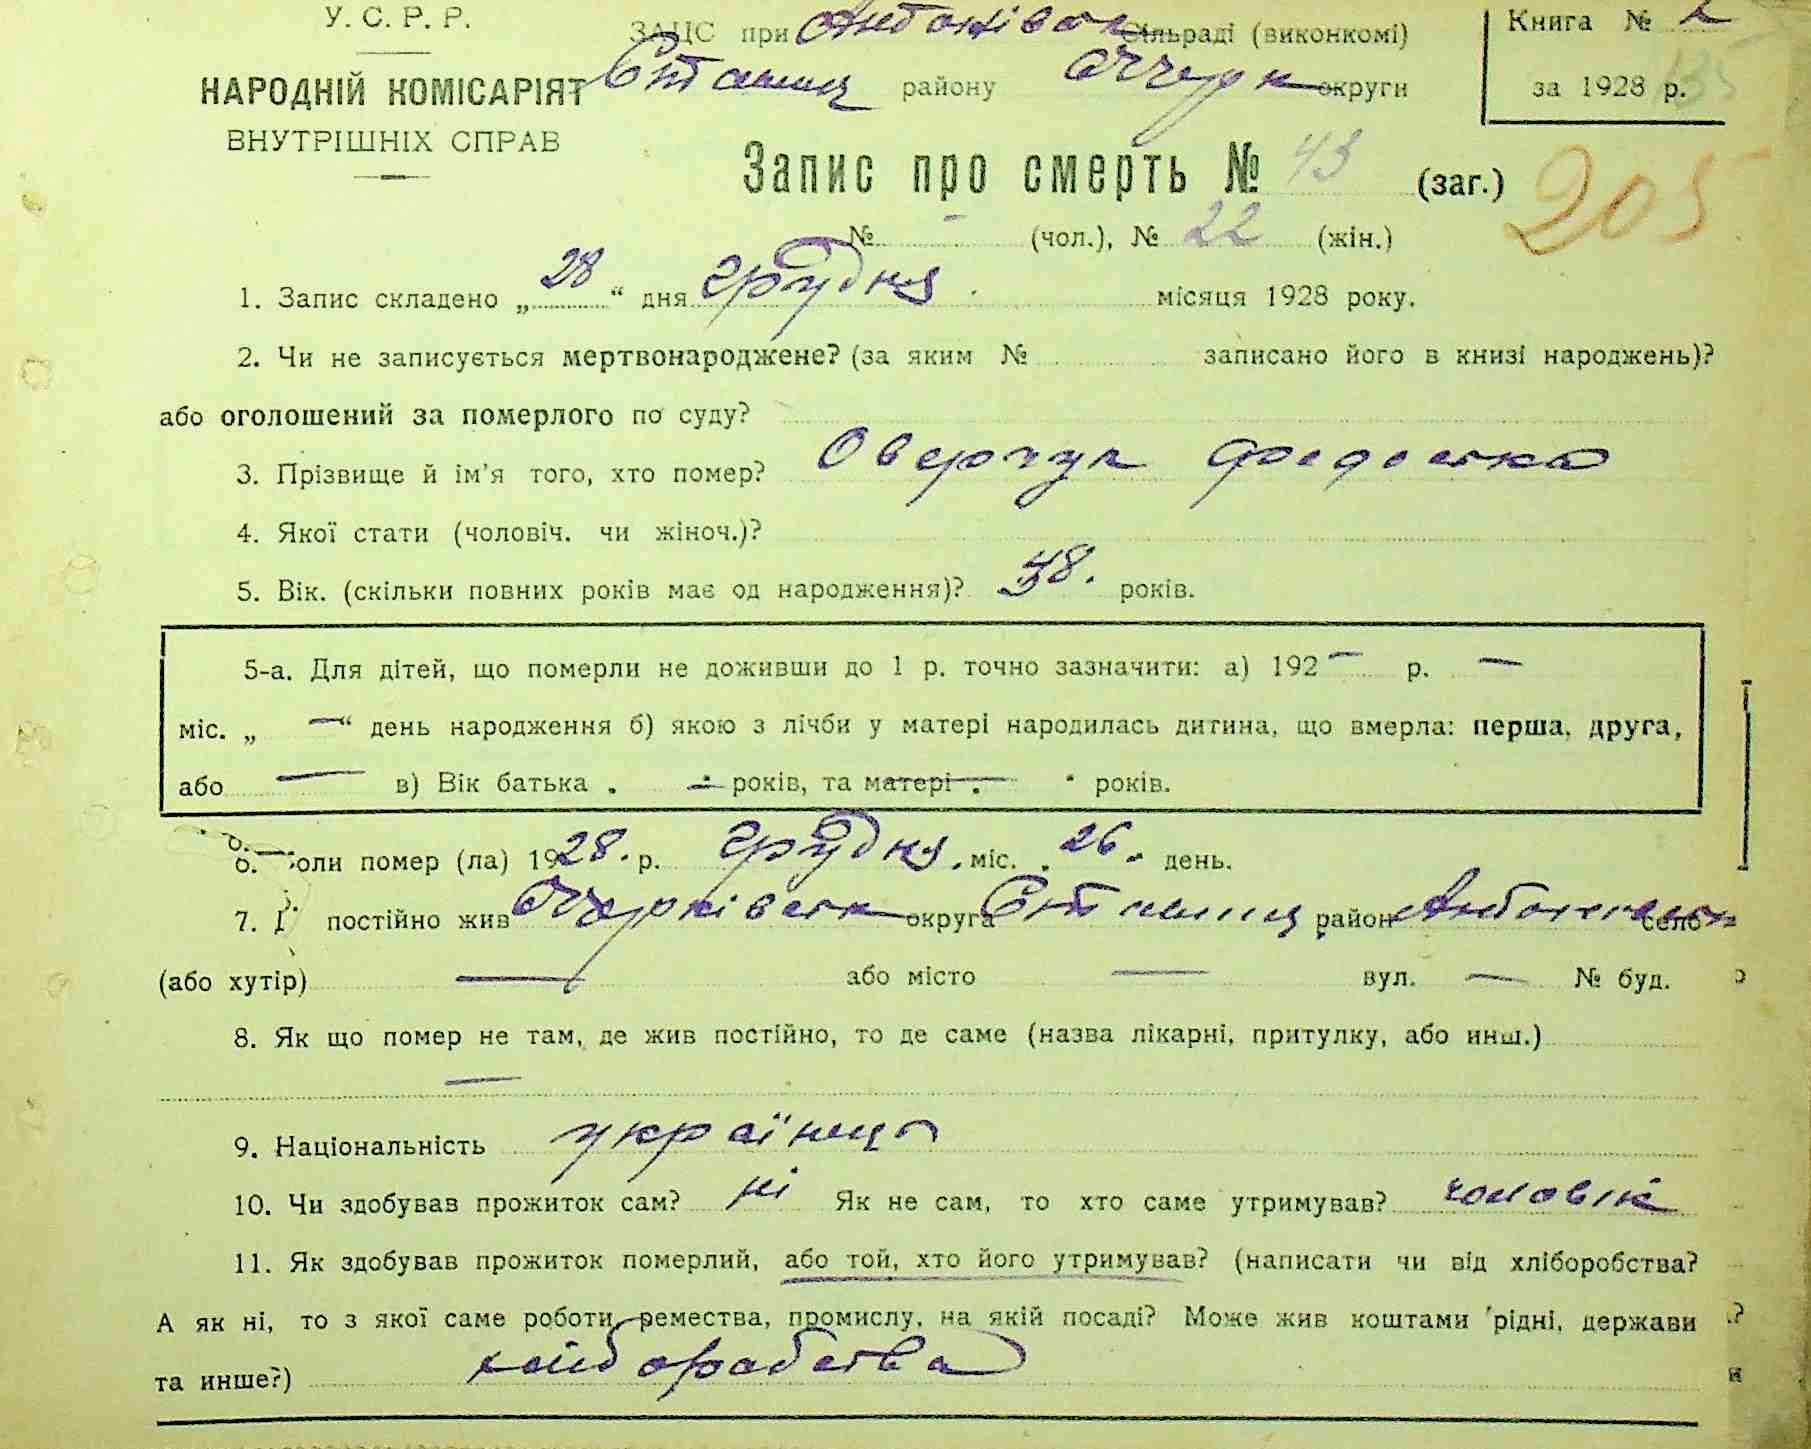 У. С. Р. Р.
ЗАЦС при Антонівск Сільраді (виконкомі)
Книга №
НАРОДНІЙ КОМІСАРІЯТ
району округи
за 1928 р.
ВНУТРІШНІХ СПРАВ
Запис про смерть № 43 (заг.) 205
№ - (чол.), № 22 (жін.)
1. Запис складено „ 28 “ дня грудня місяця 1928 року.
2. Чи не записується мертвонароджене? (за яким № записано його в книзі народжень)?
або оголошений за померлого по суду?
3. Прізвище й ім'я того, хто помер? Оверчук Федоська
4. Якої стати (чоловіч. чи жіноч.)?
5. Вік. (скільки повних років має од народження)? років.
5-а. Для дітей, що померли не доживши до 1 р. точно зазначити: а) 192 — р. —
міс. „ — “ день народження б) якою з лічби у матері народилась дитина, що вмерла: перша, друга,
або — в) Вік батька . — років, та матері . — років.
6. оли помер (ла) 1928. р. грудня. міс. . 26. день.
7. постійно жив округа район село
(або хутір) — або місто — вул. — № буд.
8. Як що помер не там, де жив постійно, то де саме (назва лікарні, притулку, або инш.)
—
9. Національність українка
10. Чи здобував прожиток сам? ні Як не сам, то хто саме утримував? чоловік
11. Як здобував прожиток померлий, або той, хто його утримував? (написати чи від хліборобства?
А як ні, то з якої саме роботи, ремества, промислу, на якій посаді? Може жив коштами рідні, держави
та инше?) хліборобства